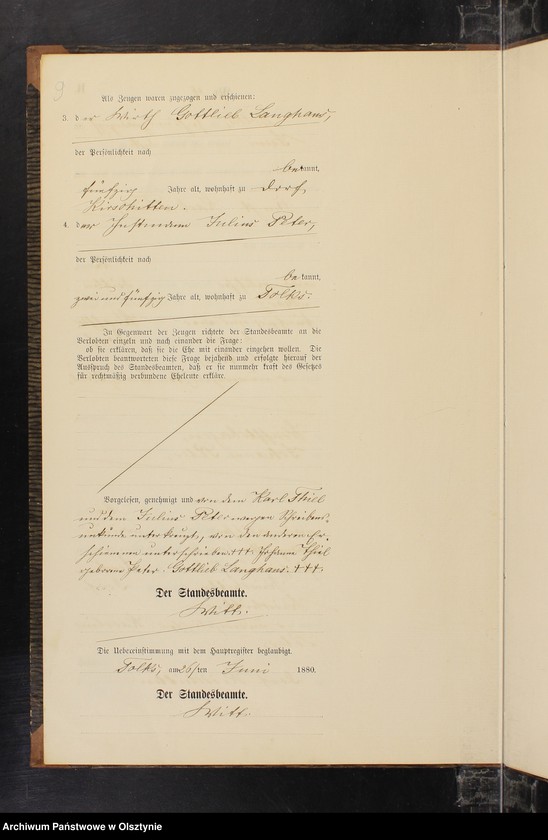 9
Als Zeugen waren zugezogen und erschienen:
3. der Wirth Gottlieb Langhans,
der Persönlichkeit nach
bekannt,
fünfzig Jahre alt, wohnhaft zu Dorf
Kirschitten.
4. der Instmann Julius Peter,
der Persönlichkeit nach
bekannt,
zwei und fünfzig Jahre alt, wohnhaft zu Tolks.
In Gegenwart der Zeugen richtete der Standesbeamte an die
Verlobten einzeln und nach einander die Frage:
ob sie erklären, daß sie die Ehe mit einander eingehen wollen. Die
Verlobten beantworteten diese Frage bejahend und erfolgte hierauf der
Ausspruch des Standesbeamten, daß er sie nunmehr kraft des Gesetzes
für rechtmäßig verbundene Eheleute erkläre.
Vorgelesen, genehmigt und von dem Karl Thiel
und dem Julius Peter wegen Schreibens-
unkunde unterkreuzt, von den anderen Er-
schienenen unterschrieben +++ Johanne Thiel
geborene Peter. Gottlieb Langhans. +++
Der Standesbeamte.
Witt.
Die Uebereinstimmung mit dem Hauptregister beglaubigt.
Tolks, am 26ten Juni 1880.
Der Standesbeamte.
Witt.
Archiwum Państwowe w Olsztynie